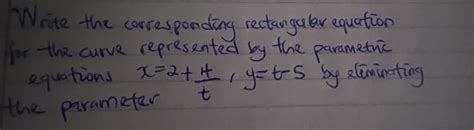 Write the corresponding rectangular equation
for the curve represented by the parametric
equations x=2+4/t, y=t-5 by eliminating
the parameter